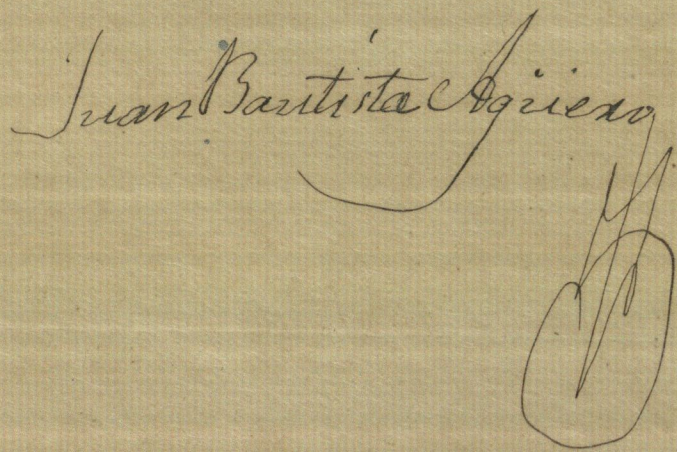 Juan Bautista Agüero